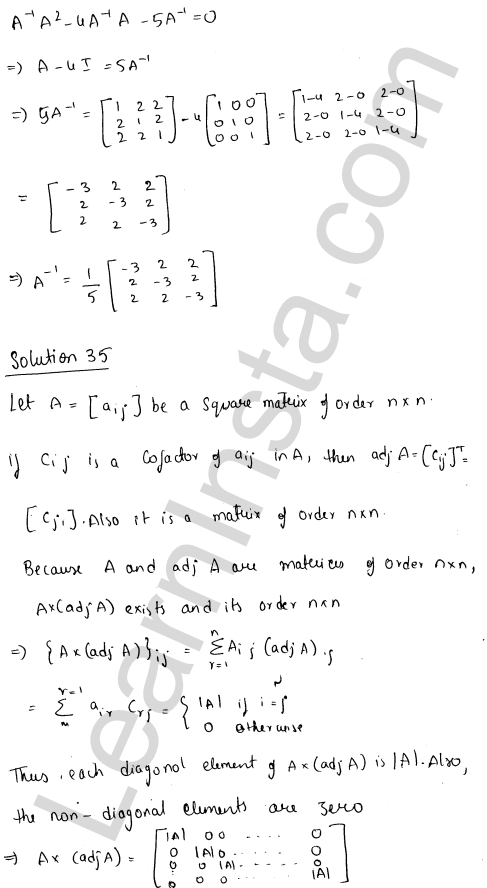 A⁻¹A² - 4A⁻¹A - 5A⁻¹ = 0
=) A - 4I = 5A⁻¹
=) 5A⁻¹ = [1 2 2 - 4 [1 0 0 = [1-4 2-0 2-0
2 1 2 0 1 0 2-0 1-4 2-0
2 2 1] 0 0 1] 2-0 2-0 1-4]
= [-3 2 2
2 -3 2
2 2 -3]
=) A⁻¹ = 1/5 [-3 2 2
2 -3 2
2 2 -3]
Solution 35
Let A = [aij] be a square matrix of order n×n.
if Cij is a Cofactor of aij in A, then adj A = [Cij]ᵀ =
[Cji]. Also it is a matrix of order n×n.
Because A and adj A are matrices of order n×n,
A×(adj A) exists and its order n×n
=) {A×(adj A)}ij = n Σ r=1 Ai j (adj A) rj
= r=1 Σ n air Crj = { |A| if i=j
0 otherwise
Thus, each diagonal element of A×(adj A) is |A|. Also,
the non-diagonal elements are zero
=) A× (adj A) = [|A| 0 0 ..... 0
0 |A| 0 ..... 0
0 0 |A| ..... 0
0 0 0 ..... |A|]
LearnInsta.com